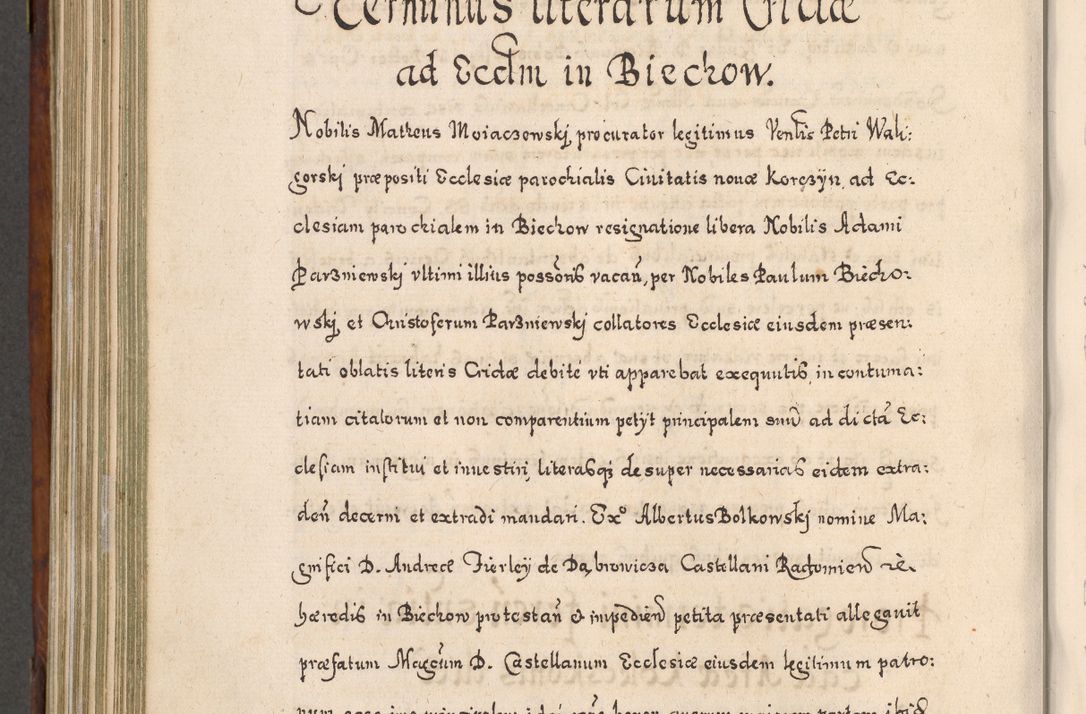 Terminus literarum Cridæ
ad Eccłm in Biechow.
Nobilis Matheus Moiaczewskj, procurator legitimus Venłis Petri Wali:
gorskj præpositi Ecclesiæ parochialis Ciuitatis nouæ Korczÿn, ad Ec:
clesiam parochialem in Biechow resignatione libera Nobilis Adami
Parzniewskj vltimi illius possoris vacan, per Nobiles Paulum Biecho:
wskj, et Christoferum Parzniewskj collatores Ecclesiæ eiusdem præsen:
tati oblatis literis Cridæ debitè vti apparebat exequutis, in contuma:
tiam citatorum et non comparentium petÿt principalem suũ ad dictã Ec:
clesiam institui et inuestiri, literasqȝ desuper necessarias eidem extra:
den decerni et extradi mandari. Exº Albertus Bolkowskj nomine Ma:
gnifici D. Andreæ Fierleÿ de Dąbrowicza Castellani Radomien
hæredis in Biechow protestan & impedien petita præsentati allegauit
præfatum Magcum D. Castellanum Ecclesiæ eiusdem legitimum patro: